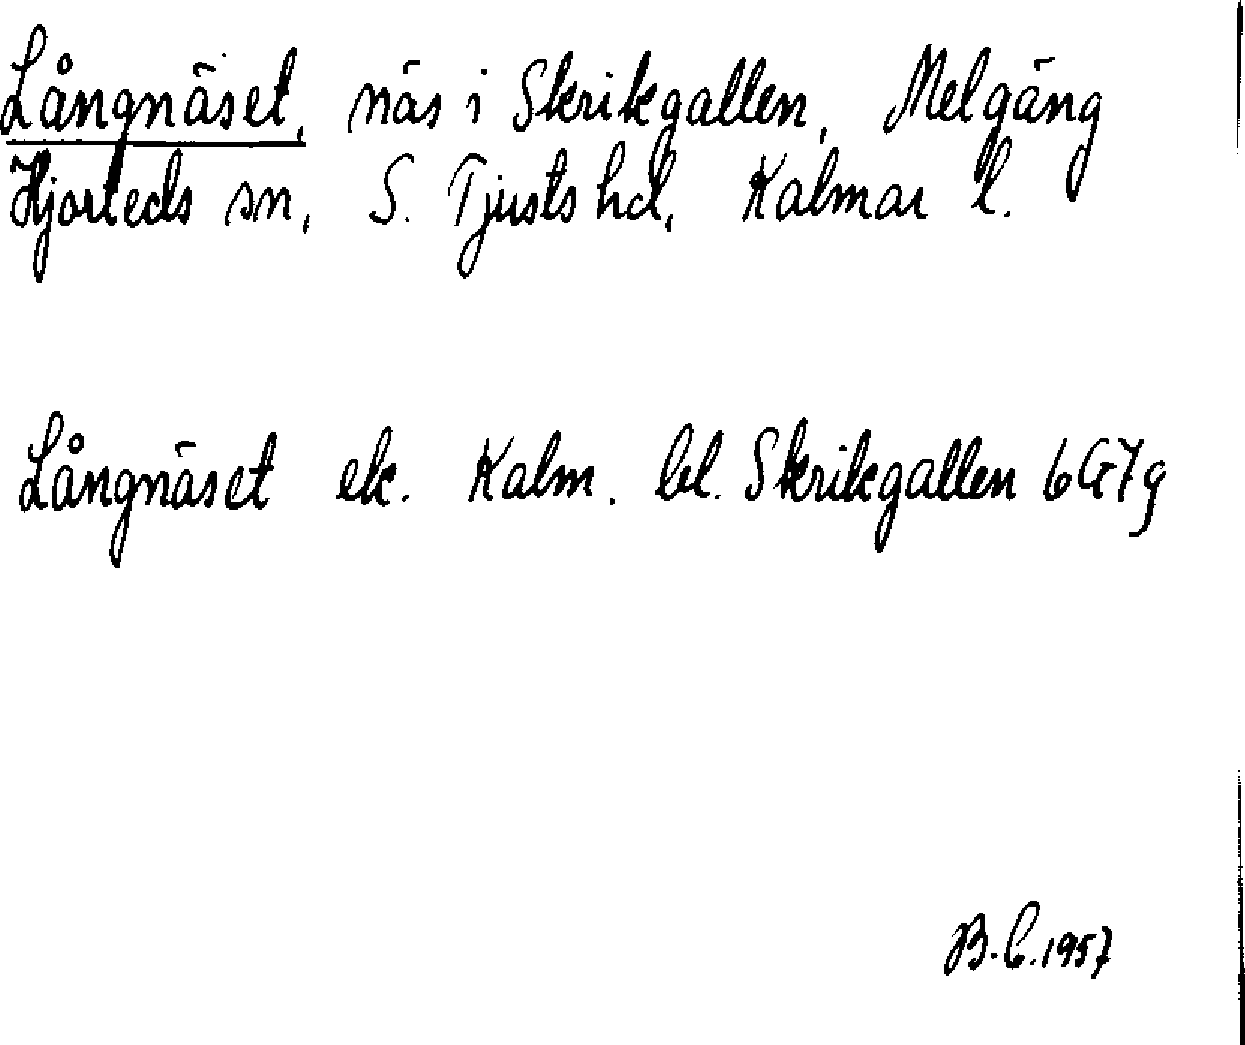 Långnäset, näs i Skrikgallen, Melgäng
Hjorteds sn, S. Tjusts hd, Kalmar l.
Långnäset ek. Kalm. bl. Skrikgallen 6G7g
B.C. 1957